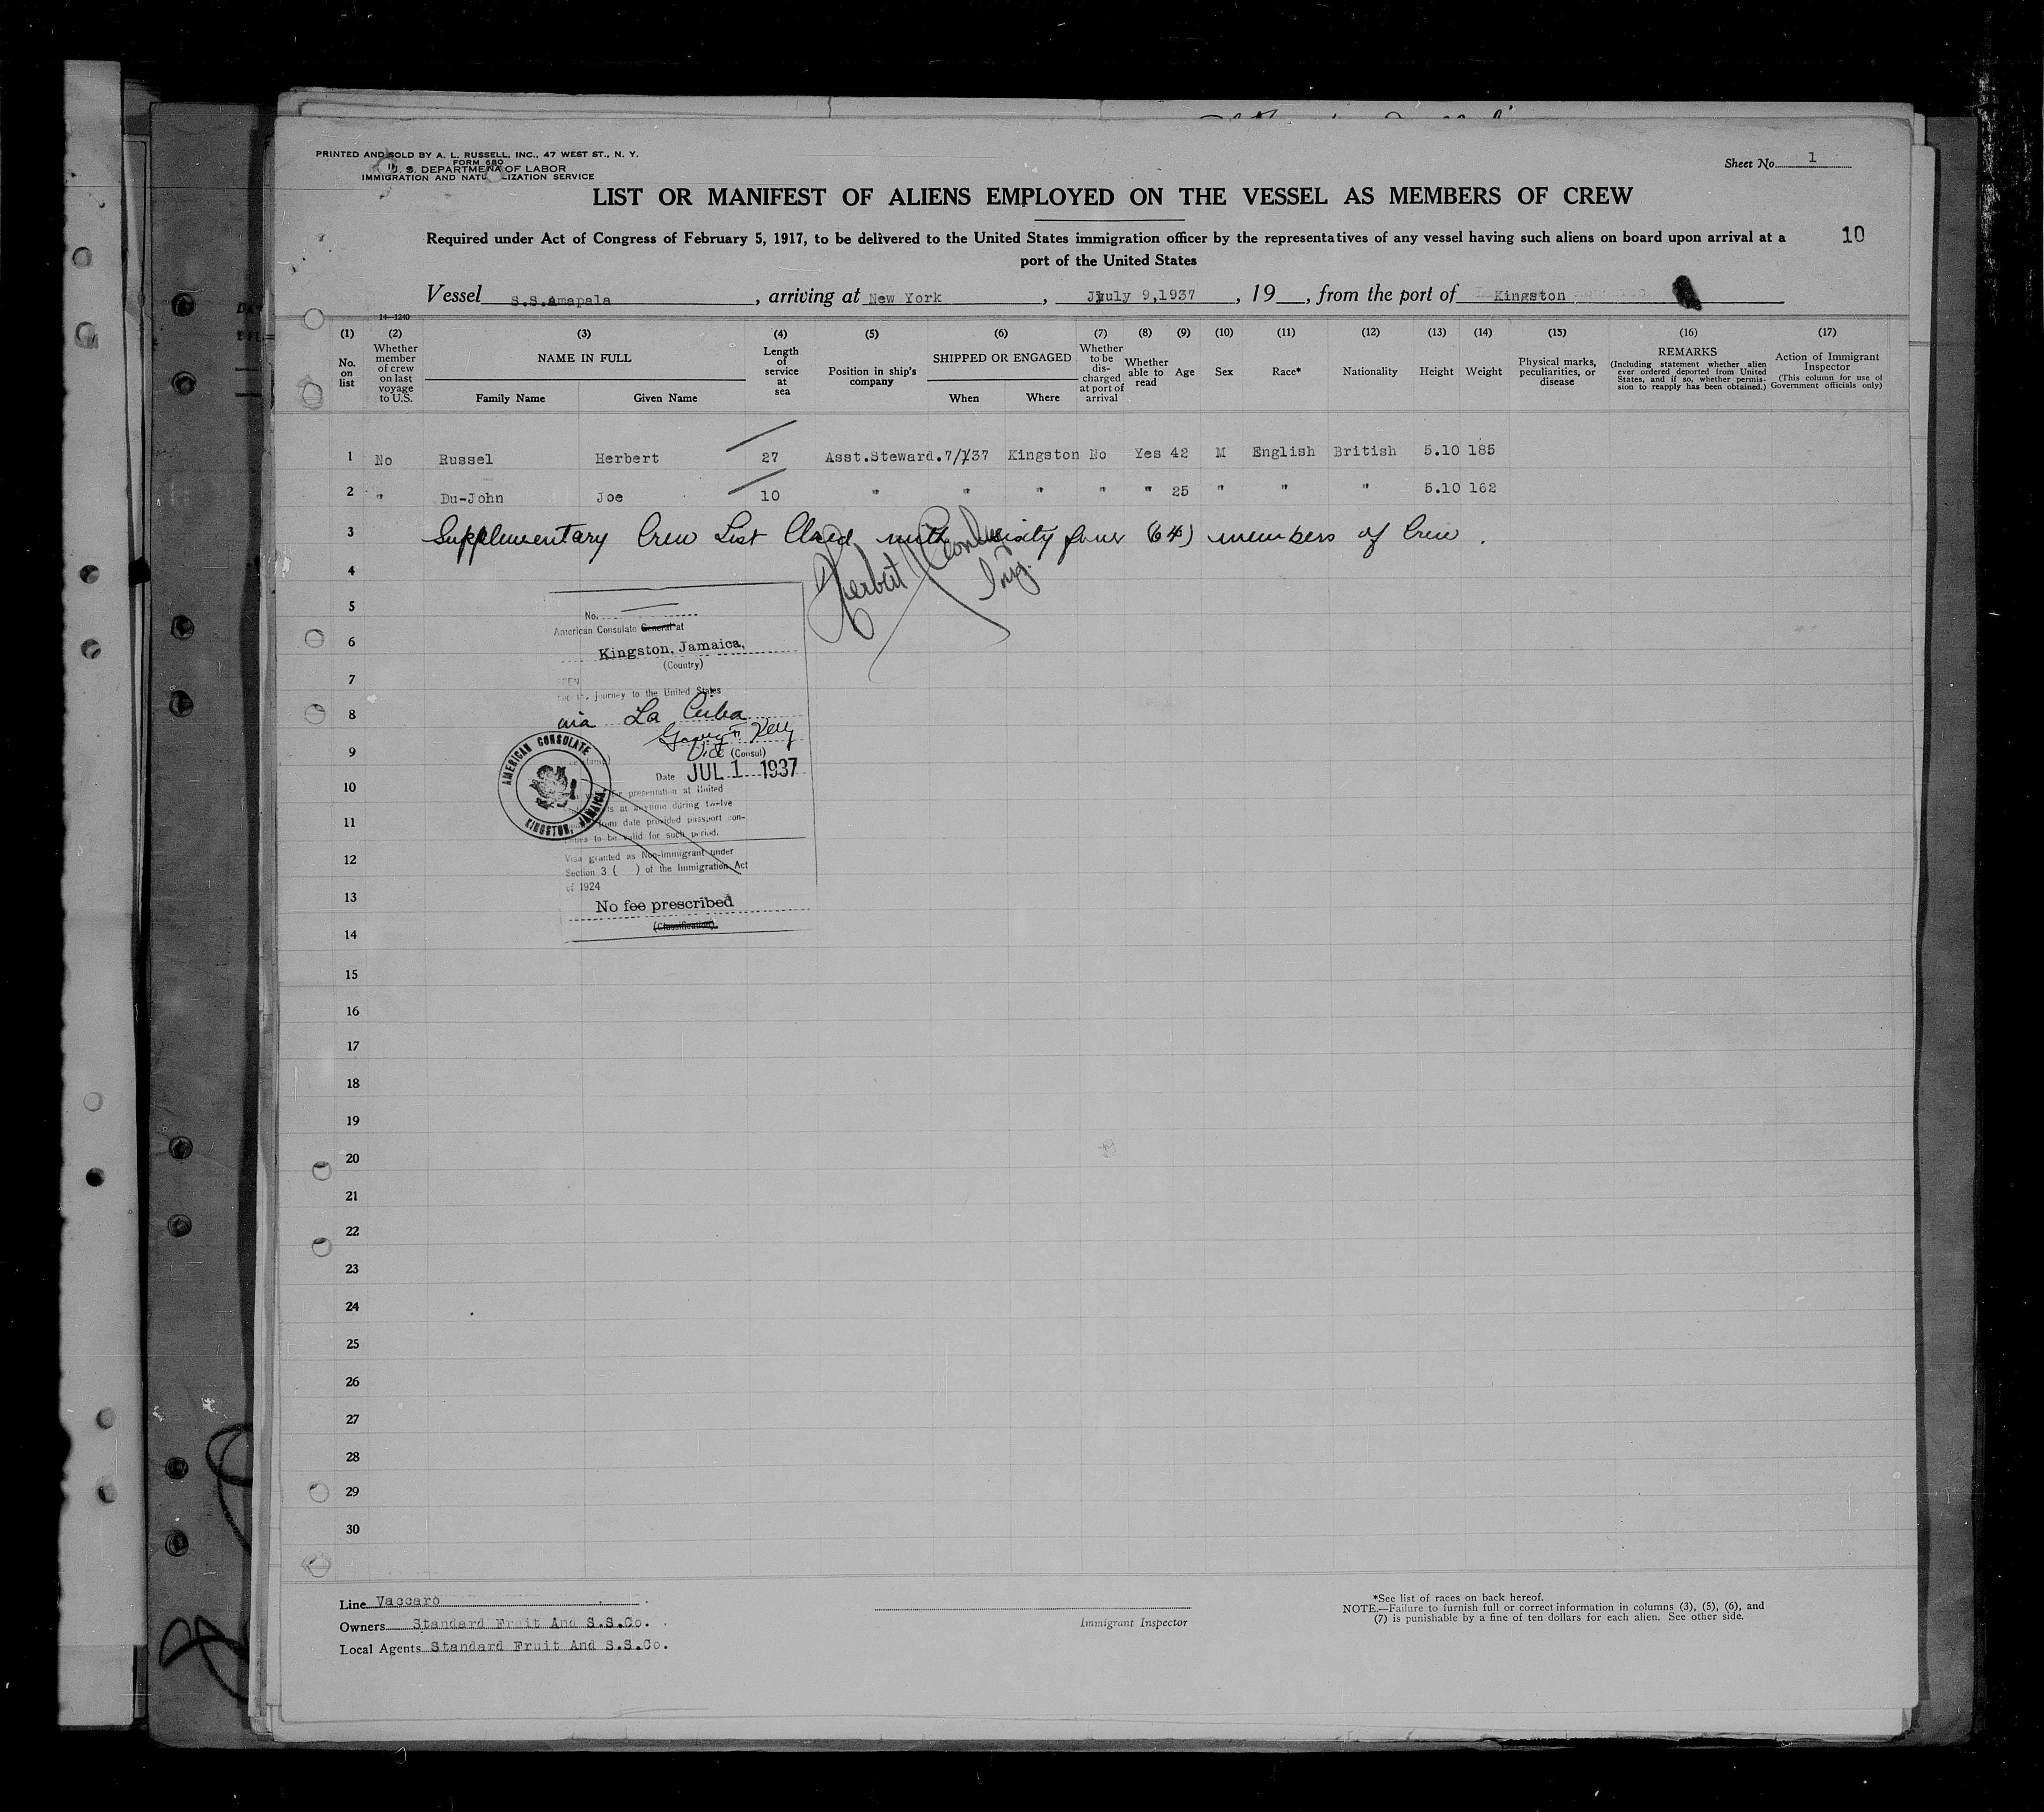 PRINTED AND SOLD BY A. L. RUSSELL, INC., 47 WEST ST., N. Y.
FORM 680
U. S. DEPARTMENT OF LABOR
IMMIGRATION AND NATURALIZATION SERVICE
Sheet No. 1
LIST OR MANIFEST OF ALIENS EMPLOYED ON THE VESSEL AS MEMBERS OF CREW
10
Required under Act of Congress of February 5, 1917, to be delivered to the United States immigration officer by the representatives of any vessel having such aliens on board upon arrival at a
port of the United States
Vessel S.S.Amapala , arriving at New York , July 9,1937 , 19 , from the port of Kingston
14—1240
(1) (2) (3) (4) (5) (6) (7) (8) (9) (10) (11) (12) (13) (14) (15) (16) (17)
No. on list
Whether member of crew on last voyage to U.S.
NAME IN FULL
Family Name Given Name
Length of service at sea
Position in ship's company
SHIPPED OR ENGAGED
When Where
Whether to be discharged at port of arrival
Whether able to read
Age
Sex
Race*
Nationality
Height
Weight
Physical marks, peculiarities, or disease
REMARKS
(Including statement whether alien ever ordered deported from United States, and if so, whether permission to reapply has been obtained.)
Action of Immigrant Inspector
(This column for use of Government officials only)
1 No Russel Herbert 27 Asst.Steward. 7/1/37 Kingston No Yes 42 M English British 5.10 185
2 " Du-John Joe 10 " " " " " 25 " " " 5.10 162
3 Supplementary Crew List Closed with sixty four (64) members of Crew .
Herbert
Insp.
4
5
No.
American Consulate General at
6
Kingston, Jamaica,
(Country)
7
SEEN
For the journey to the United States
8
via La Ceiba
9
Vice (Consul)
Date JUL 1 1937
AMERICAN CONSULATE
KINGSTON, JAMAICA.
10
for presentation at United
at anytime during twelve
11
from date provided passport con-
tinues to be valid for such period.
12
Visa granted as Non-immigrant under
Section 3 ( ) of the Immigration Act
of 1924
13
No fee prescribed
(Classification)
14
15
16
17
18
19
20
21
22
23
24
25
26
27
28
29
30
Line Vaccaro
Owners Standard Fruit And S.S.Co.
Local Agents Standard Fruit And S.S.Co.
Immigrant Inspector
*See list of races on back hereof.
NOTE.—Failure to furnish full or correct information in columns (3), (5), (6), and
(7) is punishable by a fine of ten dollars for each alien. See other side.